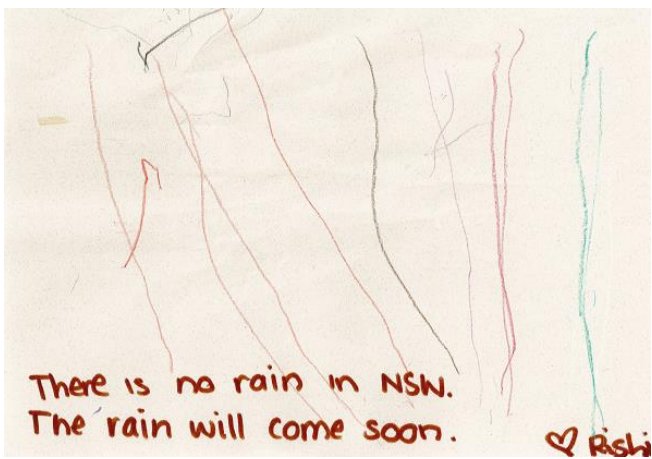 There is no rain in NSW.
The rain will come soon.
♡ Rishi